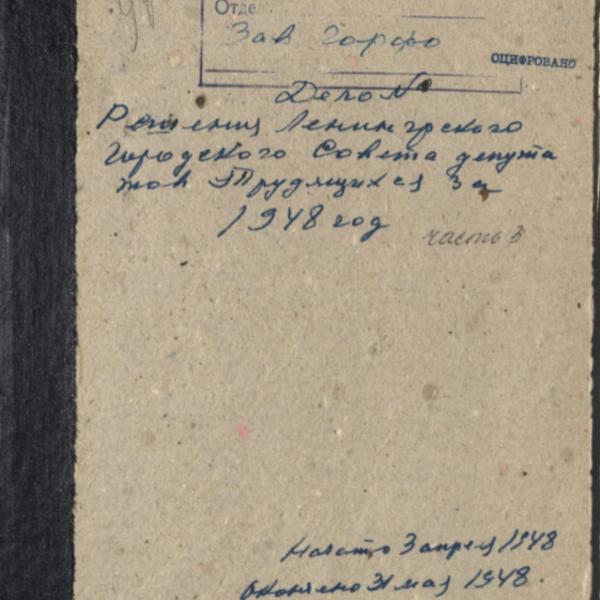 Отде
Зав Горфо
ОЦИФРОВАНО
Дело №
Решения Ленингрского
Городского Совета депута
тов Трудящихся за
1948 год
часть 3
Начато 3 апреля 1948
Окончено 31 мая 1948.